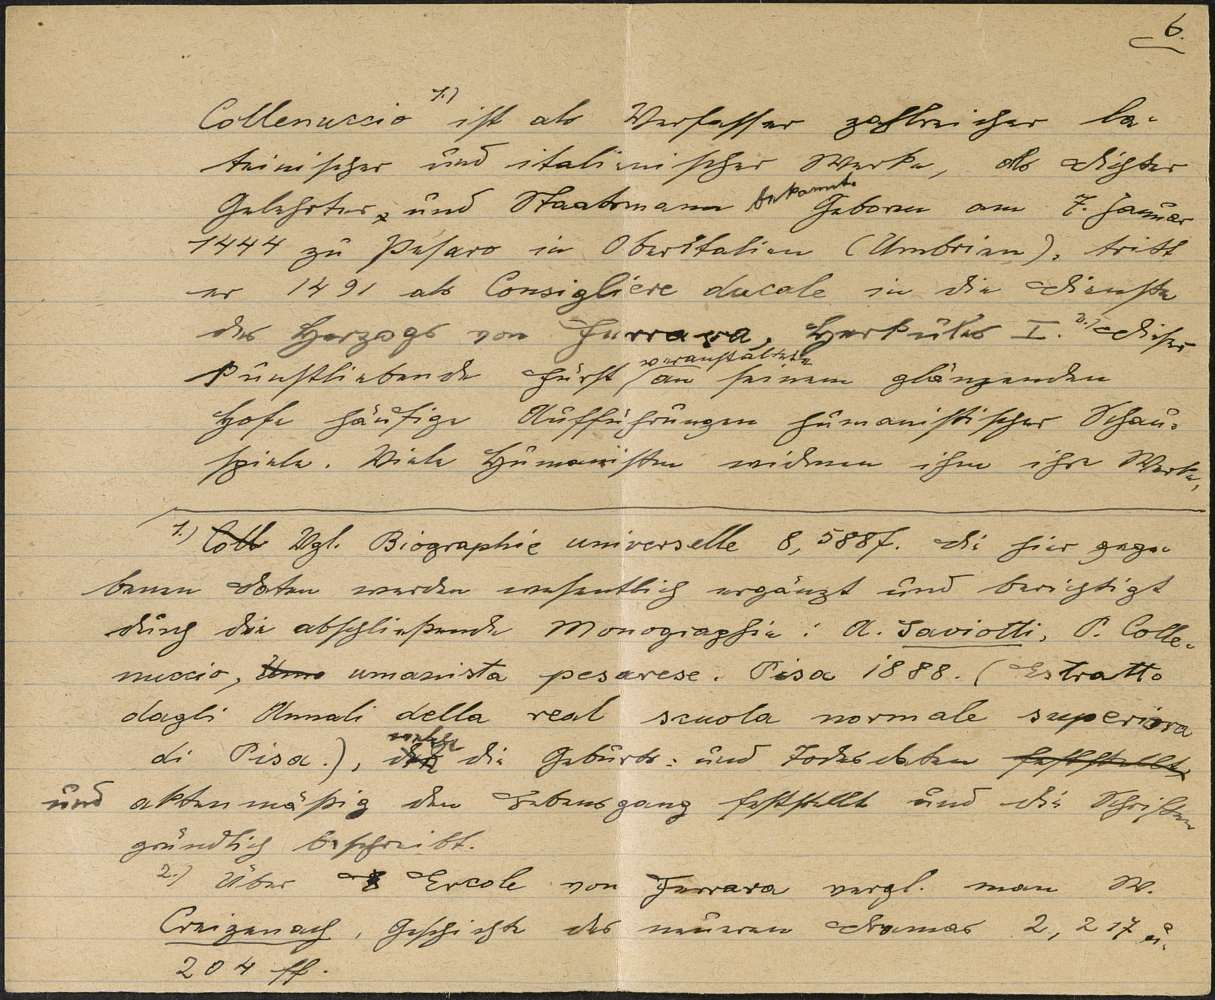 6.
Collenuccio 1.) ist als Verfasser zahlreicher la-
teinischer und italienischer Werke, als Dichter
Gelehrter, und Staatsmann bekannt. Geboren am 7. Januar
1444 zu Pesaro in Oberitalien (Umbrien), tritt
er 1491 als Consigliere ducale in die Dienste
des Herzogs von Ferrara, Herkules I. 2.) Dieser
kunstliebende Fürst veranstaltete an seinem glänzenden
Hofe häufige Aufführungen humanistischer Schau-
spiele. Viele Humanisten widmen ihm ihre Werke,
1.) Coll Vgl. Biographie universelle 8, 588f. Die hier gege-
benen Daten werden wesentlich ergänzt und berichtigt
durch die abschließende Monographie: A. Saviotti, P. Colle-
nuccio, Uma umanista pesarese. Pisa 1888. (Estratto
dagli Annali della real scuola normale superiora
di Pisa.), welche die Geburts- und Todesdaten feststellt
und aktenmäßig den Lebensgang feststellt und die Schriften
gründlich beschreibt.
2.) Über Ercole von Ferrara vergl. man W.
Creizenach, Geschichte des neueren Dramas 2, 217 u.
204 ff.